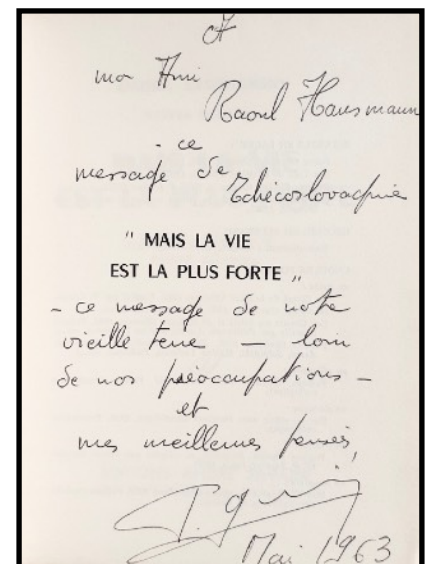 A
mon Ami
Raoul Hausmann
- ce
message de Tchécoslovaquie
" MAIS LA VIE
EST LA PLUS FORTE „
- ce message de notre
vieille terre — loin
de nos préoccupations -
et
mes meilleures pensées,
Mai 1963